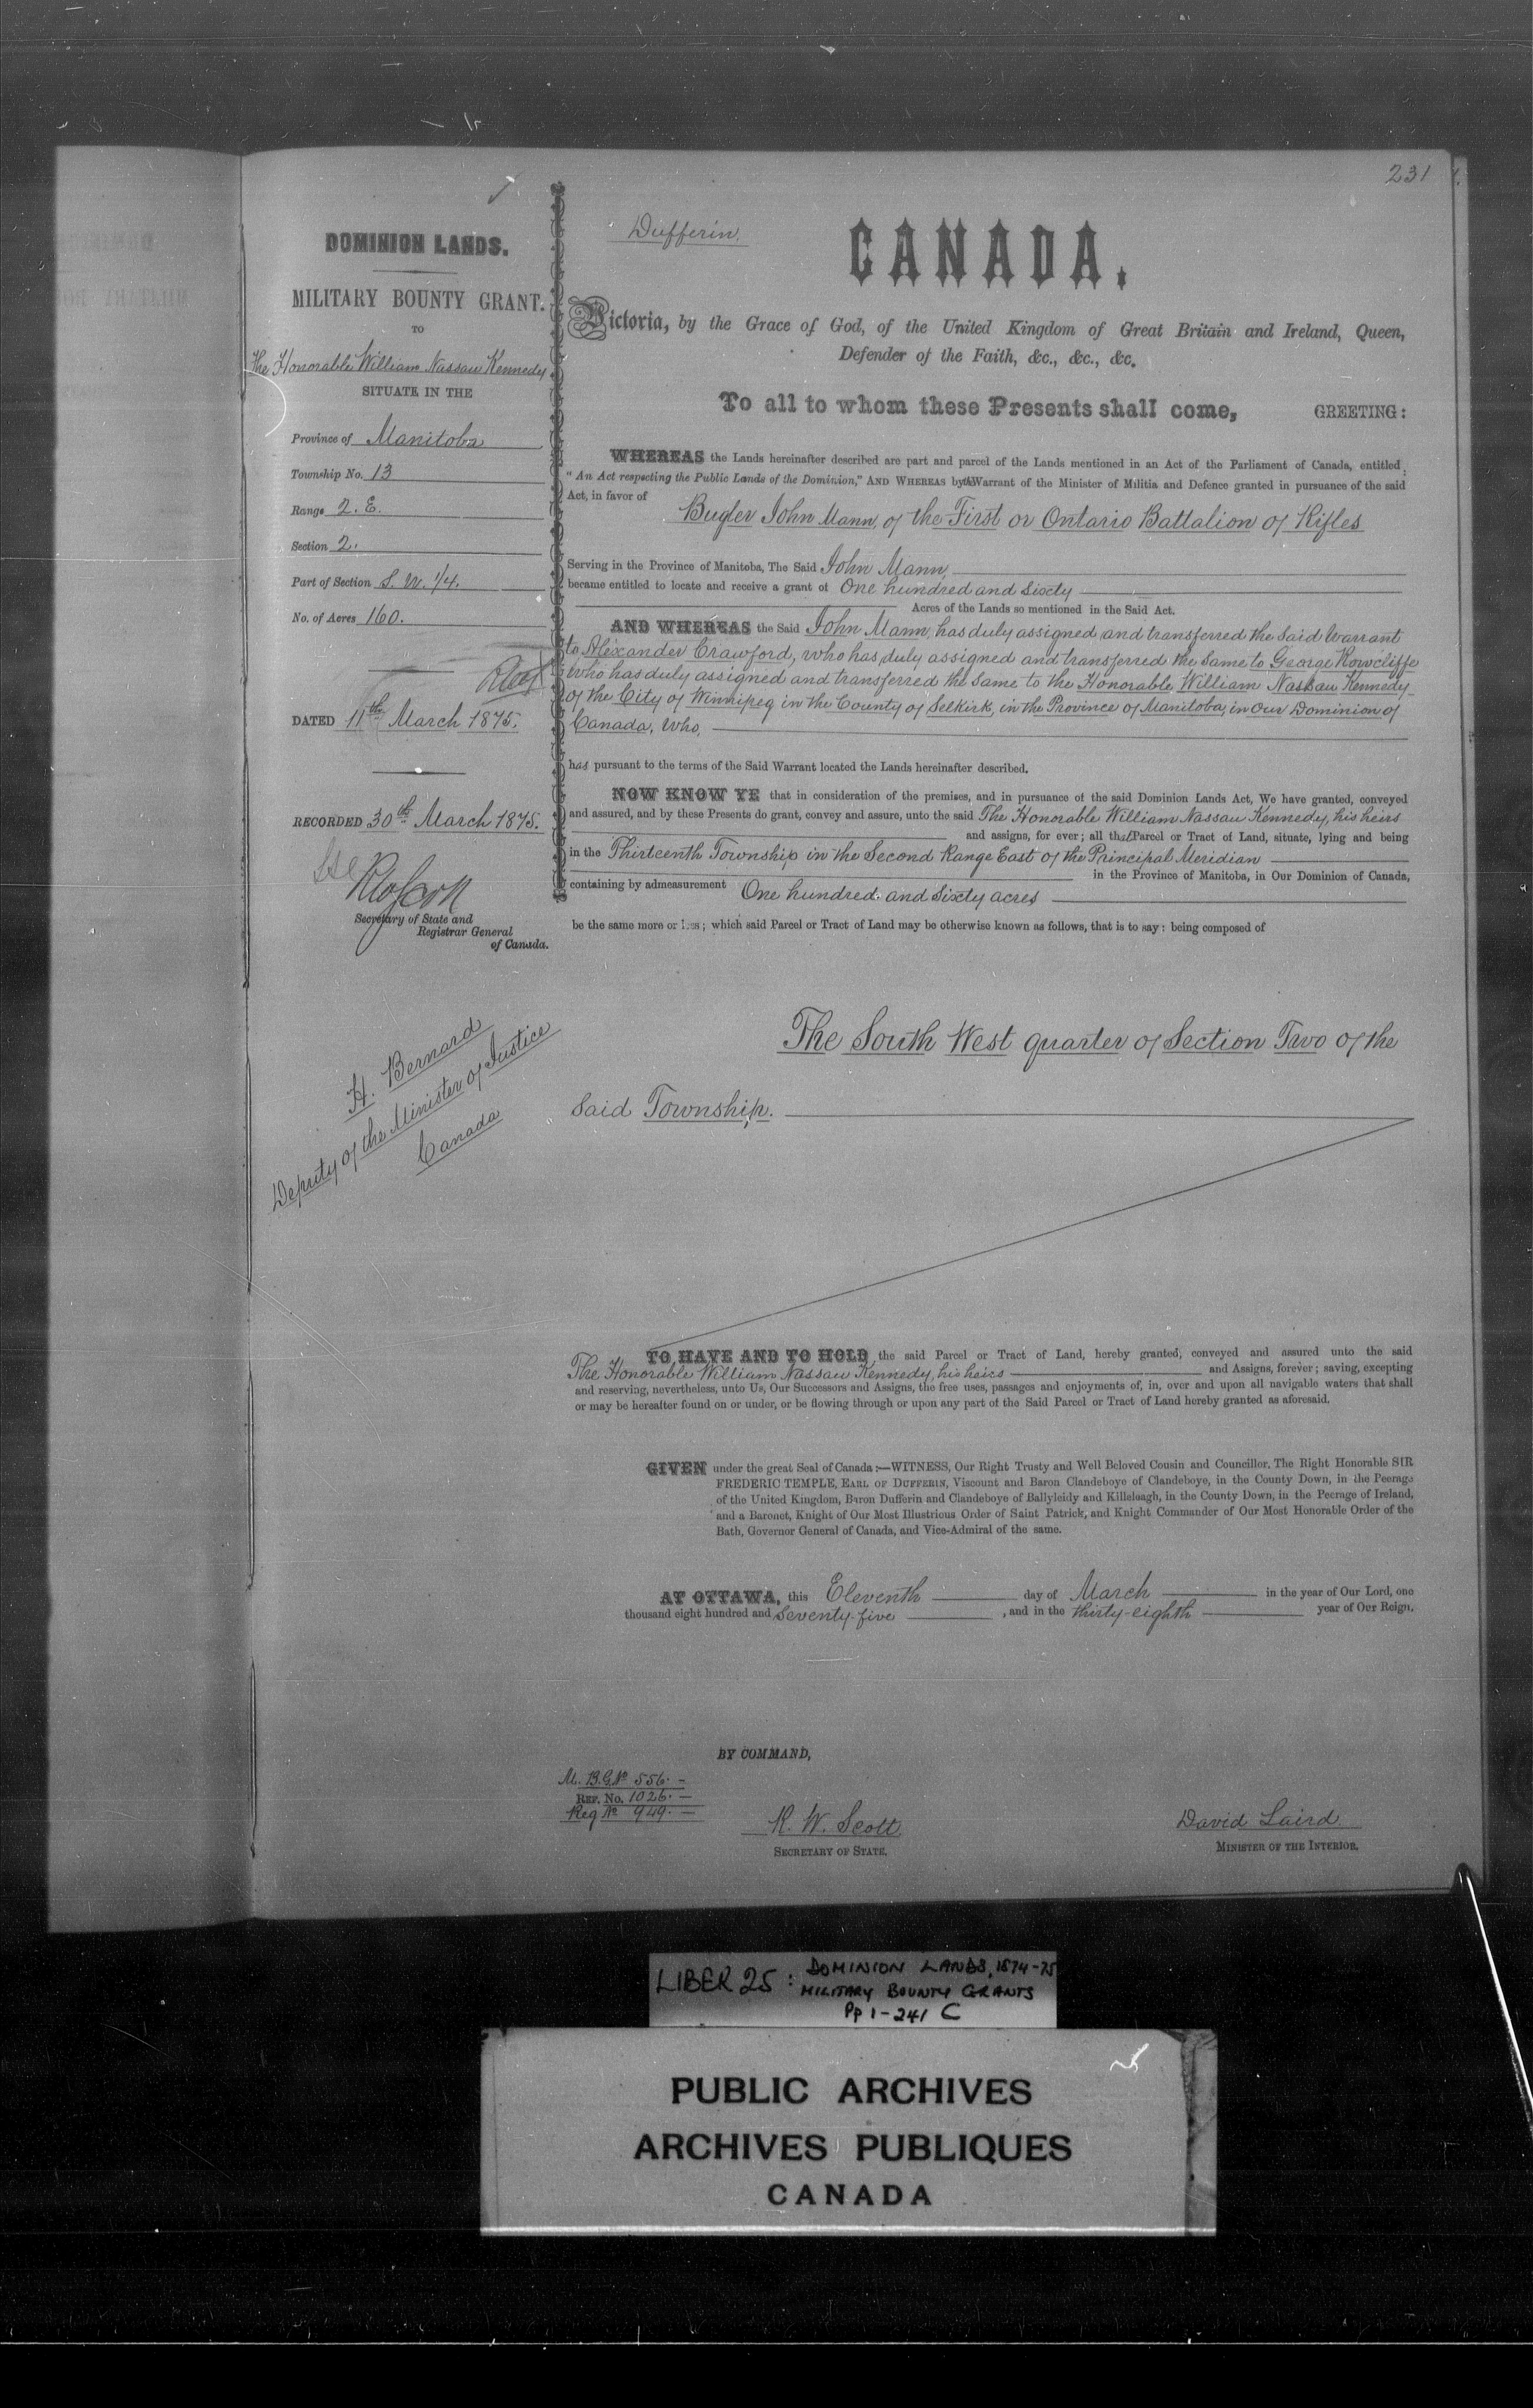 231
DOMINION LANDS.
MILITARY BOUNTY GRANT.
TO
The Honorable William Nassau Kennedy
SITUATE IN THE
Province of Manitoba
Township No. 13
Range 2. E.
Section 2.
Part of Section S. W. 1/4.
No. of Acres 160.
DATED 11th March 1875.
RECORDED 30th March 1875.
Secretary of State and
Registrar General
of Canada.
H. Bernard
Deputy of the Minister of Justice
Canada
Dufferin.
CANADA.
Victoria, by the Grace of God, of the United Kingdom of Great Britain and Ireland, Queen,
Defender of the Faith, &c., &c., &c.
To all to whom these Presents shall come, GREETING:
WHEREAS the Lands hereinafter described are part and parcel of the Lands mentioned in an Act of the Parliament of Canada, entitled
"An Act respecting the Public Lands of the Dominion," AND WHEREAS by the Warrant of the Minister of Militia and Defence granted in pursuance of the said
Act, in favor of
Bugler John Mann, of the First or Ontario Battalion of Rifles
Serving in the Province of Manitoba, The Said John Mann,
became entitled to locate and receive a grant of One hundred and Sixty
Acres of the Lands so mentioned in the Said Act.
AND WHEREAS the Said John Mann, has duly assigned and transferred the Said Warrant
to Alexander Crawford, who has duly assigned and transferred the same to George Rowcliffe
who has duly assigned and transferred the same to the Honorable William Nassau Kennedy
of the City of Winnipeg in the County of Selkirk, in the Province of Manitoba, in Our Dominion of
Canada, who,
has pursuant to the terms of the Said Warrant located the Lands hereinafter described.
NOW KNOW YE that in consideration of the premises, and in pursuance of the said Dominion Lands Act, We have granted, conveyed
and assured, and by these Presents do grant, convey and assure, unto the said The Honorable William Nassau Kennedy, his heirs
and assigns, for ever; all that Parcel or Tract of Land, situate, lying and being
in the Thirteenth Township in the Second Range East of the Principal Meridian
in the Province of Manitoba, in Our Dominion of Canada,
containing by admeasurement One hundred and Sixty acres
be the same more or less; which said Parcel or Tract of Land may be otherwise known as follows, that is to say: being composed of
The South West quarter of Section Two of the
said Township.
TO HAVE AND TO HOLD the said Parcel or Tract of Land, hereby granted, conveyed and assured unto the said
The Honorable William Nassau Kennedy, his heirs and Assigns, forever; saving, excepting
and reserving, nevertheless, unto Us, Our Successors and Assigns, the free uses, passages and enjoyments of, in, over and upon all navigable waters that shall
or may be hereafter found on or under, or be flowing through or upon any part of the Said Parcel or Tract of Land hereby granted as aforesaid.
GIVEN under the great Seal of Canada:—WITNESS, Our Right Trusty and Well Beloved Cousin and Councillor, The Right Honorable SIR
FREDERIC TEMPLE, EARL OF DUFFERIN, Viscount and Baron Clandeboye of Clandeboye, in the County Down, in the Peerage
of the United Kingdom, Baron Dufferin and Clandeboye of Ballyleidy and Killeleagh, in the County Down, in the Peerage of Ireland,
and a Baronet, Knight of Our Most Illustrious Order of Saint Patrick, and Knight Commander of Our Most Honorable Order of the
Bath, Governor General of Canada, and Vice-Admiral of the same.
AT OTTAWA, this Eleventh day of March in the year of Our Lord, one
thousand eight hundred and Seventy-five, and in the thirty-eighth year of Our Reign.
BY COMMAND,
M. B. G. No 556.
REF. No. 1026.
Reg No 949.
R. W. Scott
SECRETARY OF STATE.
David Laird
MINISTER OF THE INTERIOR.
LIBER 25: DOMINION LANDS, 1874-75
MILITARY BOUNTY GRANTS
Pp 1-241 C
PUBLIC ARCHIVES
ARCHIVES PUBLIQUES
CANADA